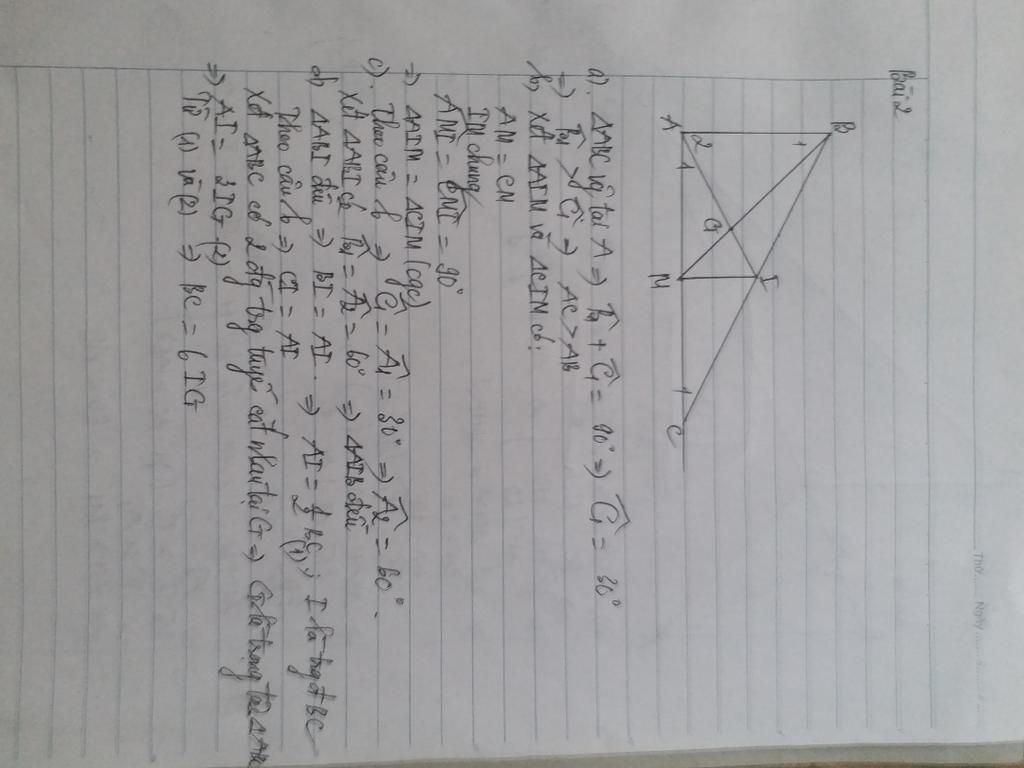 Thứ..... Ngày.....
Bài 2
B
1
A 2
1
G
I
M
1
C
a). ΔABC vg tại A ⇒ B̂₁ + Ĉ₁ = 90° ⇒ Ĉ₁ = 30°
⇒) B̂₁ > Ĉ₁ ⇒ AC > AB
b). Xét ΔAIM và ΔCIM có:
AM = CM
IM chung
AMI = CMI = 90°
⇒ ΔAIM = ΔCIM (cgc)
c). Theo câu b ⇒ Ĉ₁ = Â₁ = 30° ⇒ Â₂ = 60°.
Xét ΔABI có B̂₁ = Â₂ = 60° ⇒ ΔAIB đều
d) ΔABI đều ⇒ BI = AI. ⇒ AI = 1/2 BC (1); I là trg đ BC
Theo câu b ⇒ CI = AI
Xét ΔABC có 2 đg trg tuyến cắt nhau tại G ⇒ G là trọng tâm ΔABC
⇒) AI = 3IG (2)
Từ (1) và (2) ⇒ BC = 6 IG